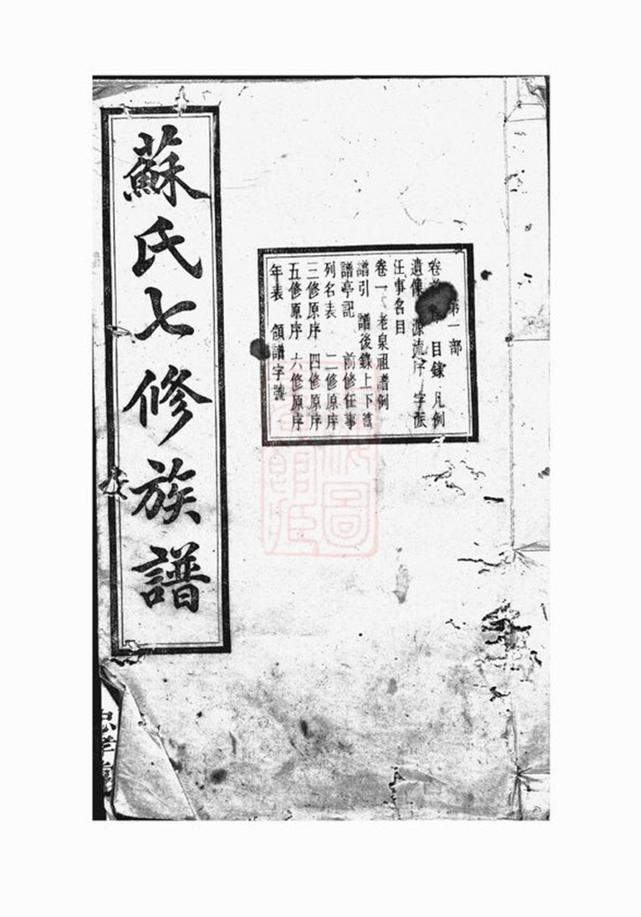 第一部
卷首 目錄 凡例
遺像 源流序 字派
任事名目
卷一 老泉祖譜例
譜引 譜後錄上下篇
譜亭記 前修任事
列名表 二修原序
三修原序 四修原序
五修原序 六修原序
年表 領譜字號
蘇氏七修族譜